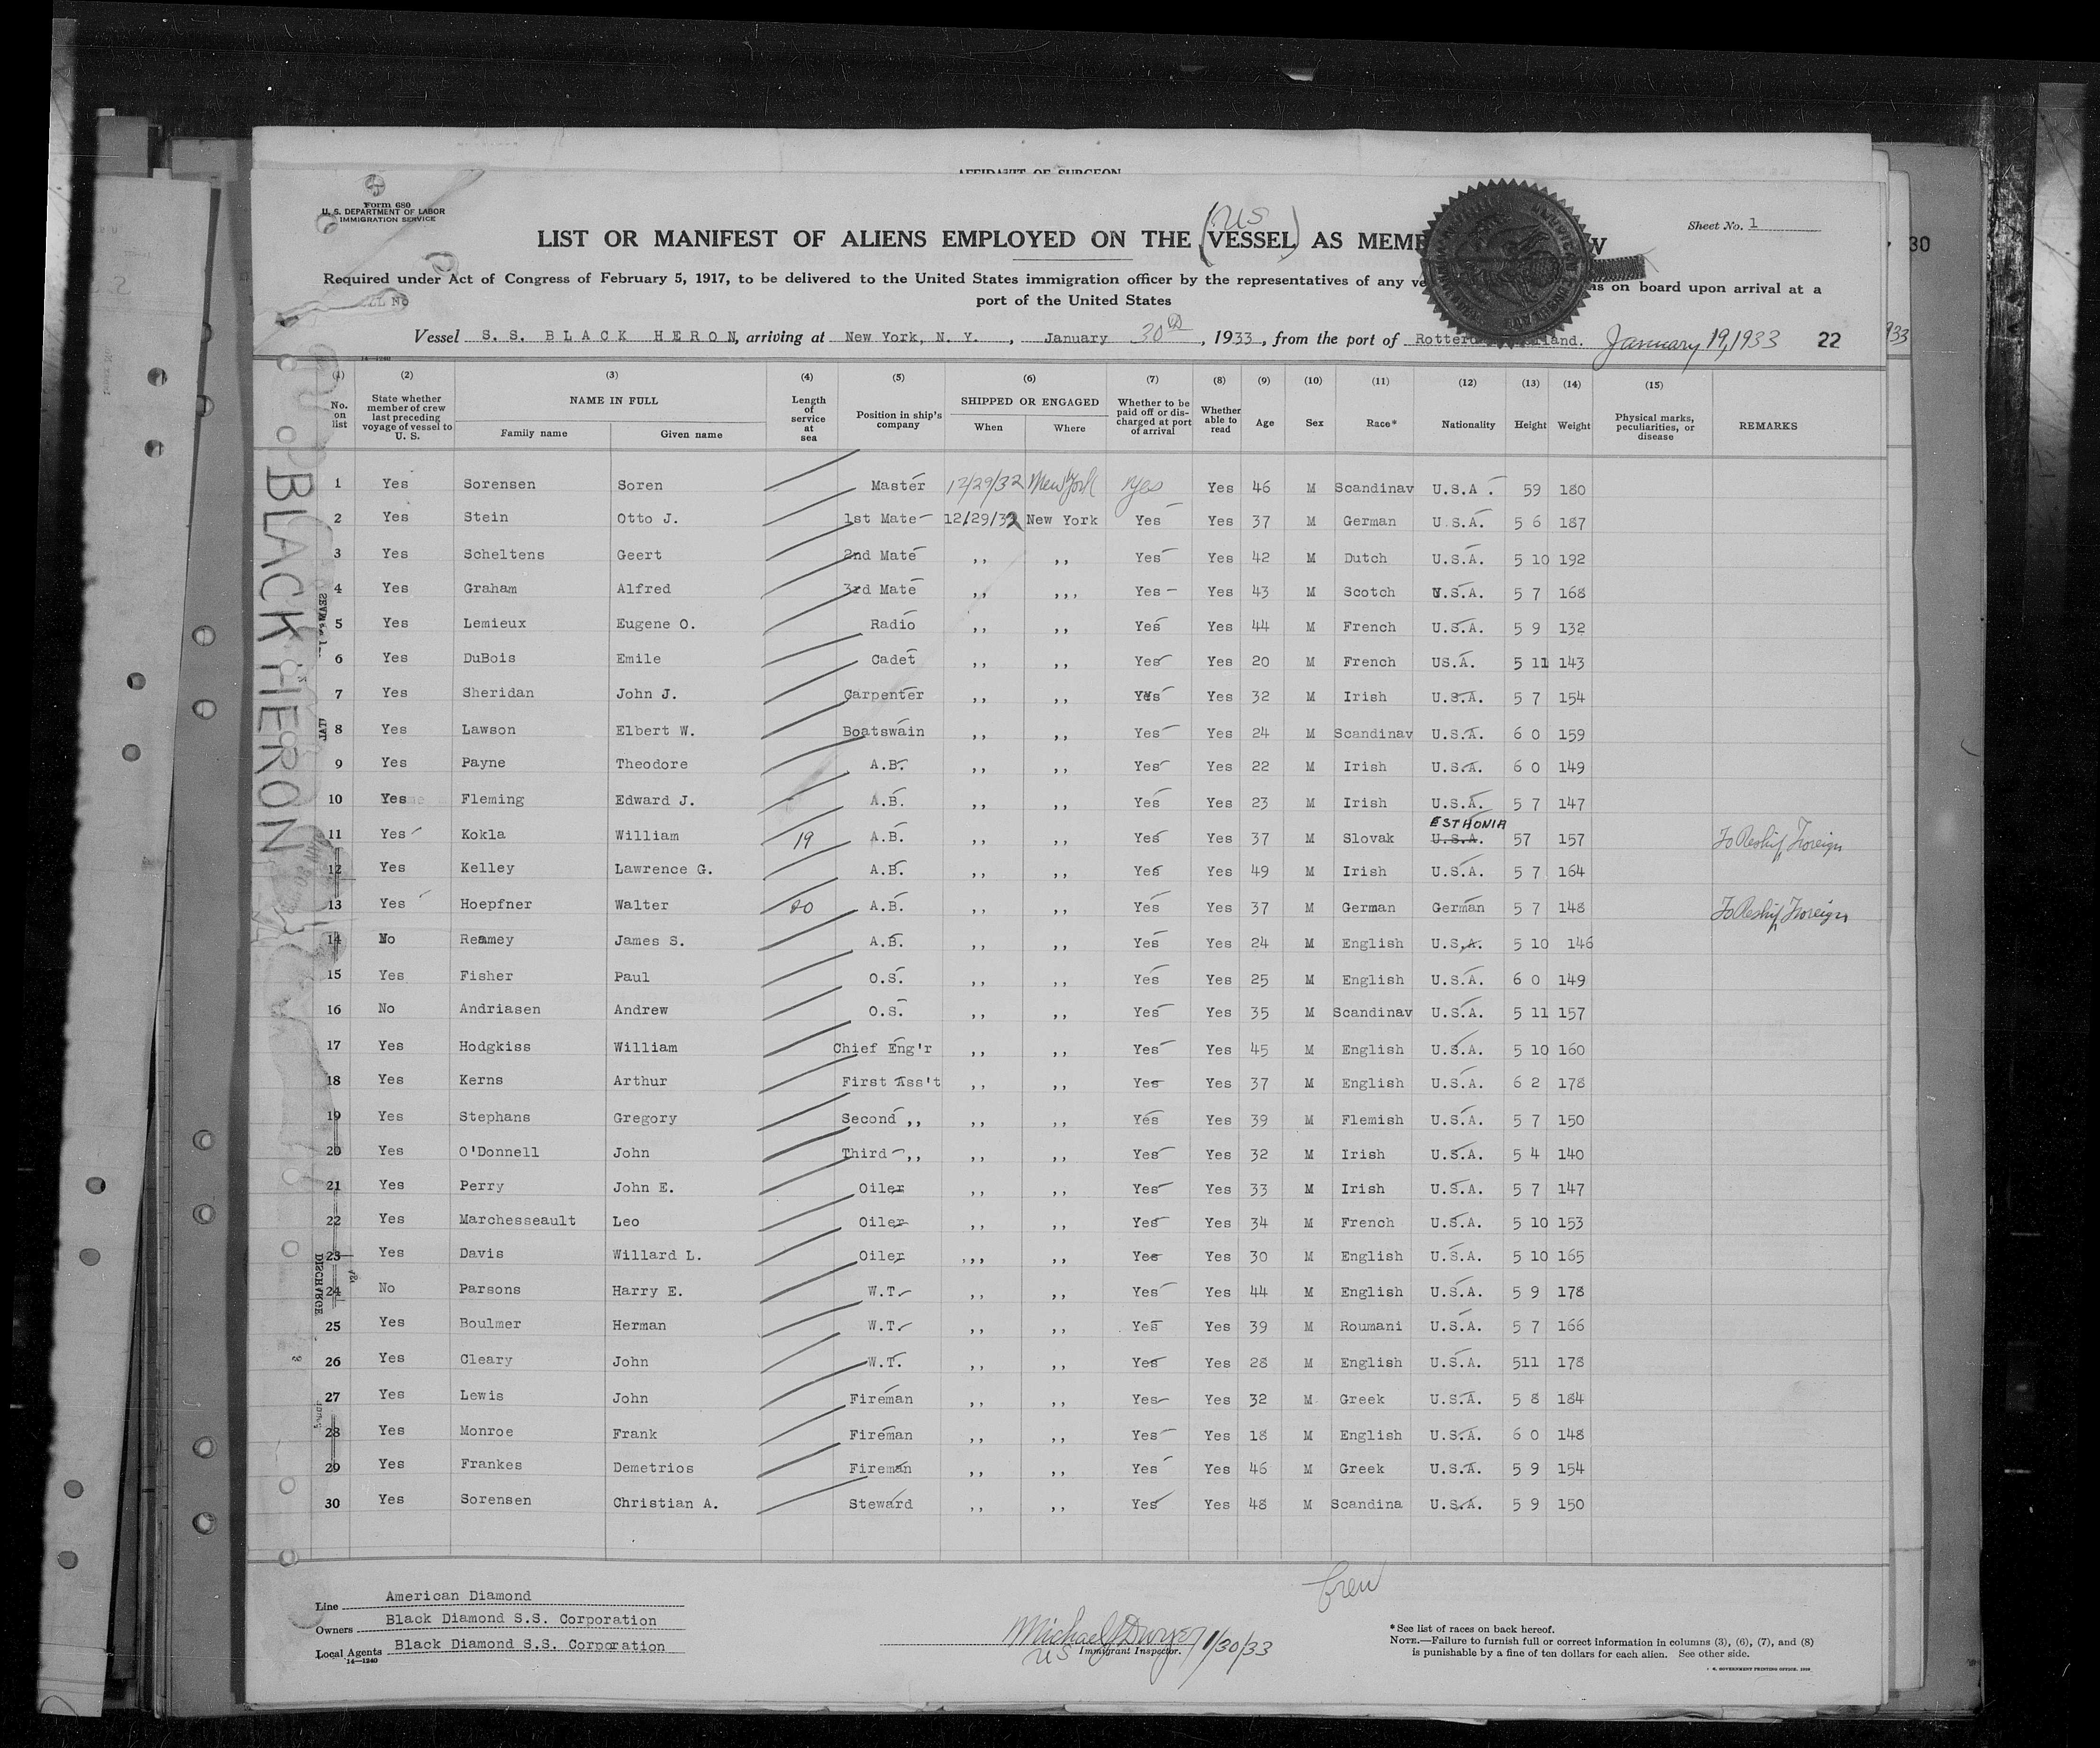 AFFIDAVIT OF SURGEON
Form 680
U. S. DEPARTMENT OF LABOR
IMMIGRATION SERVICE
Sheet No. 1
(US)
LIST OR MANIFEST OF ALIENS EMPLOYED ON THE VESSEL AS MEM W
30
Required under Act of Congress of February 5, 1917, to be delivered to the United States immigration officer by the representatives of any ve ns on board upon arrival at a
port of the United States
Vessel S. S. BLACK HERON, arriving at New York, N. Y., January 30th, 1933, from the port of Rotter land. January 19, 1933 22
933
14-1240
(1) (2) (3) (4) (5) (6) (7) (8) (9) (10) (11) (12) (13) (14) (15)
No. on list State whether member of crew last preceding voyage of vessel to U. S. NAME IN FULL Family name Given name Length of service at sea Position in ship's company SHIPPED OR ENGAGED When Where Whether to be paid off or discharged at port of arrival Whether able to read Age Sex Race* Nationality Height Weight Physical marks, peculiarities, or disease REMARKS
BLACK HERON
1 Yes Sorensen Soren Master 12/29/32 New York Yes Yes 46 M Scandinav U.S.A. 59 180
2 Yes Stein Otto J. 1st Mate 12/29/32 New York Yes Yes 37 M German U.S.A. 5 6 187
3 Yes Scheltens Geert 2nd Mate ,, ,, Yes Yes 42 M Dutch U.S.A. 5 10 192
4 Yes Graham Alfred 3rd Mate ,, ,,, Yes Yes 43 M Scotch U.S.A. 5 7 168
5 Yes Lemieux Eugene O. Radio ,, ,, Yes Yes 44 M French U.S.A. 5 9 132
6 Yes DuBois Emile Cadet ,, ,, Yes Yes 20 M French US.A. 5 11 143
7 Yes Sheridan John J. Carpenter ,, ,, Yes Yes 32 M Irish U.S.A. 5 7 154
8 Yes Lawson Elbert W. Boatswain ,, ,, Yes Yes 24 M Scandinav U.S.A. 6 0 159
9 Yes Payne Theodore A.B. ,, ,, Yes Yes 22 M Irish U.S.A. 6 0 149
10 Yes Fleming Edward J. A.B. ,, ,, Yes Yes 23 M Irish U.S.A. 5 7 147
ESTHONIA
11 Yes Kokla William 19 A.B. ,, ,, Yes Yes 37 M Slovak U.S.A. 57 157 To Reship Foreign
12 Yes Kelley Lawrence G. A.B. ,, ,, Yes Yes 49 M Irish U.S.A. 5 7 164
13 Yes Hoepfner Walter 20 A.B. ,, ,, Yes Yes 37 M German German 5 7 148 To Reship Foreign
14 No Reamey James S. A.B. ,, ,, Yes Yes 24 M English U.S.A. 5 10 146
15 Yes Fisher Paul O.S. ,, ,, Yes Yes 25 M English U.S.A. 6 0 149
16 No Andriasen Andrew O.S. ,, ,, Yes Yes 35 M Scandinav U.S.A. 5 11 157
17 Yes Hodgkiss William Chief Eng'r ,, ,, Yes Yes 45 M English U.S.A. 5 10 160
18 Yes Kerns Arthur First Ass't ,, ,, Yes Yes 37 M English U.S.A. 6 2 178
19 Yes Stephans Gregory Second ,, ,, ,, Yes Yes 39 M Flemish U.S.A. 5 7 150
20 Yes O'Donnell John Third ,, ,, ,, Yes Yes 32 M Irish U.S.A. 5 4 140
21 Yes Perry John E. Oiler ,, ,, Yes Yes 33 M Irish U.S.A. 5 7 147
22 Yes Marchesseault Leo Oiler ,, ,, Yes Yes 34 M French U.S.A. 5 10 153
23 Yes Davis Willard L. Oiler ,,, ,, Yes Yes 30 M English U.S.A. 5 10 165
24 No Parsons Harry E. W.T. ,, ,, Yes Yes 44 M English U.S.A. 5 9 178
25 Yes Boulmer Herman W.T. ,, ,, Yes Yes 39 M Roumani U.S.A. 5 7 166
26 Yes Cleary John W.T. ,, ,, Yes Yes 28 M English U.S.A. 511 178
27 Yes Lewis John Fireman ,, ,, Yes Yes 32 M Greek U.S.A. 5 8 184
28 Yes Monroe Frank Fireman ,, ,, Yes Yes 18 M English U.S.A. 6 0 148
29 Yes Frankes Demetrios Fireman ,, ,, Yes Yes 46 M Greek U.S.A. 5 9 154
30 Yes Sorensen Christian A. Steward ,, ,, Yes Yes 48 M Scandina U.S.A. 5 9 150
DISCHARGE
Crew
Line American Diamond
Owners Black Diamond S.S. Corporation
Local Agents Black Diamond S.S. Corporation
14-1240
Michael J Dwyer 1/30/33
US Immigrant Inspector.
*See list of races on back hereof.
NOTE.—Failure to furnish full or correct information in columns (3), (6), (7), and (8)
is punishable by a fine of ten dollars for each alien. See other side.